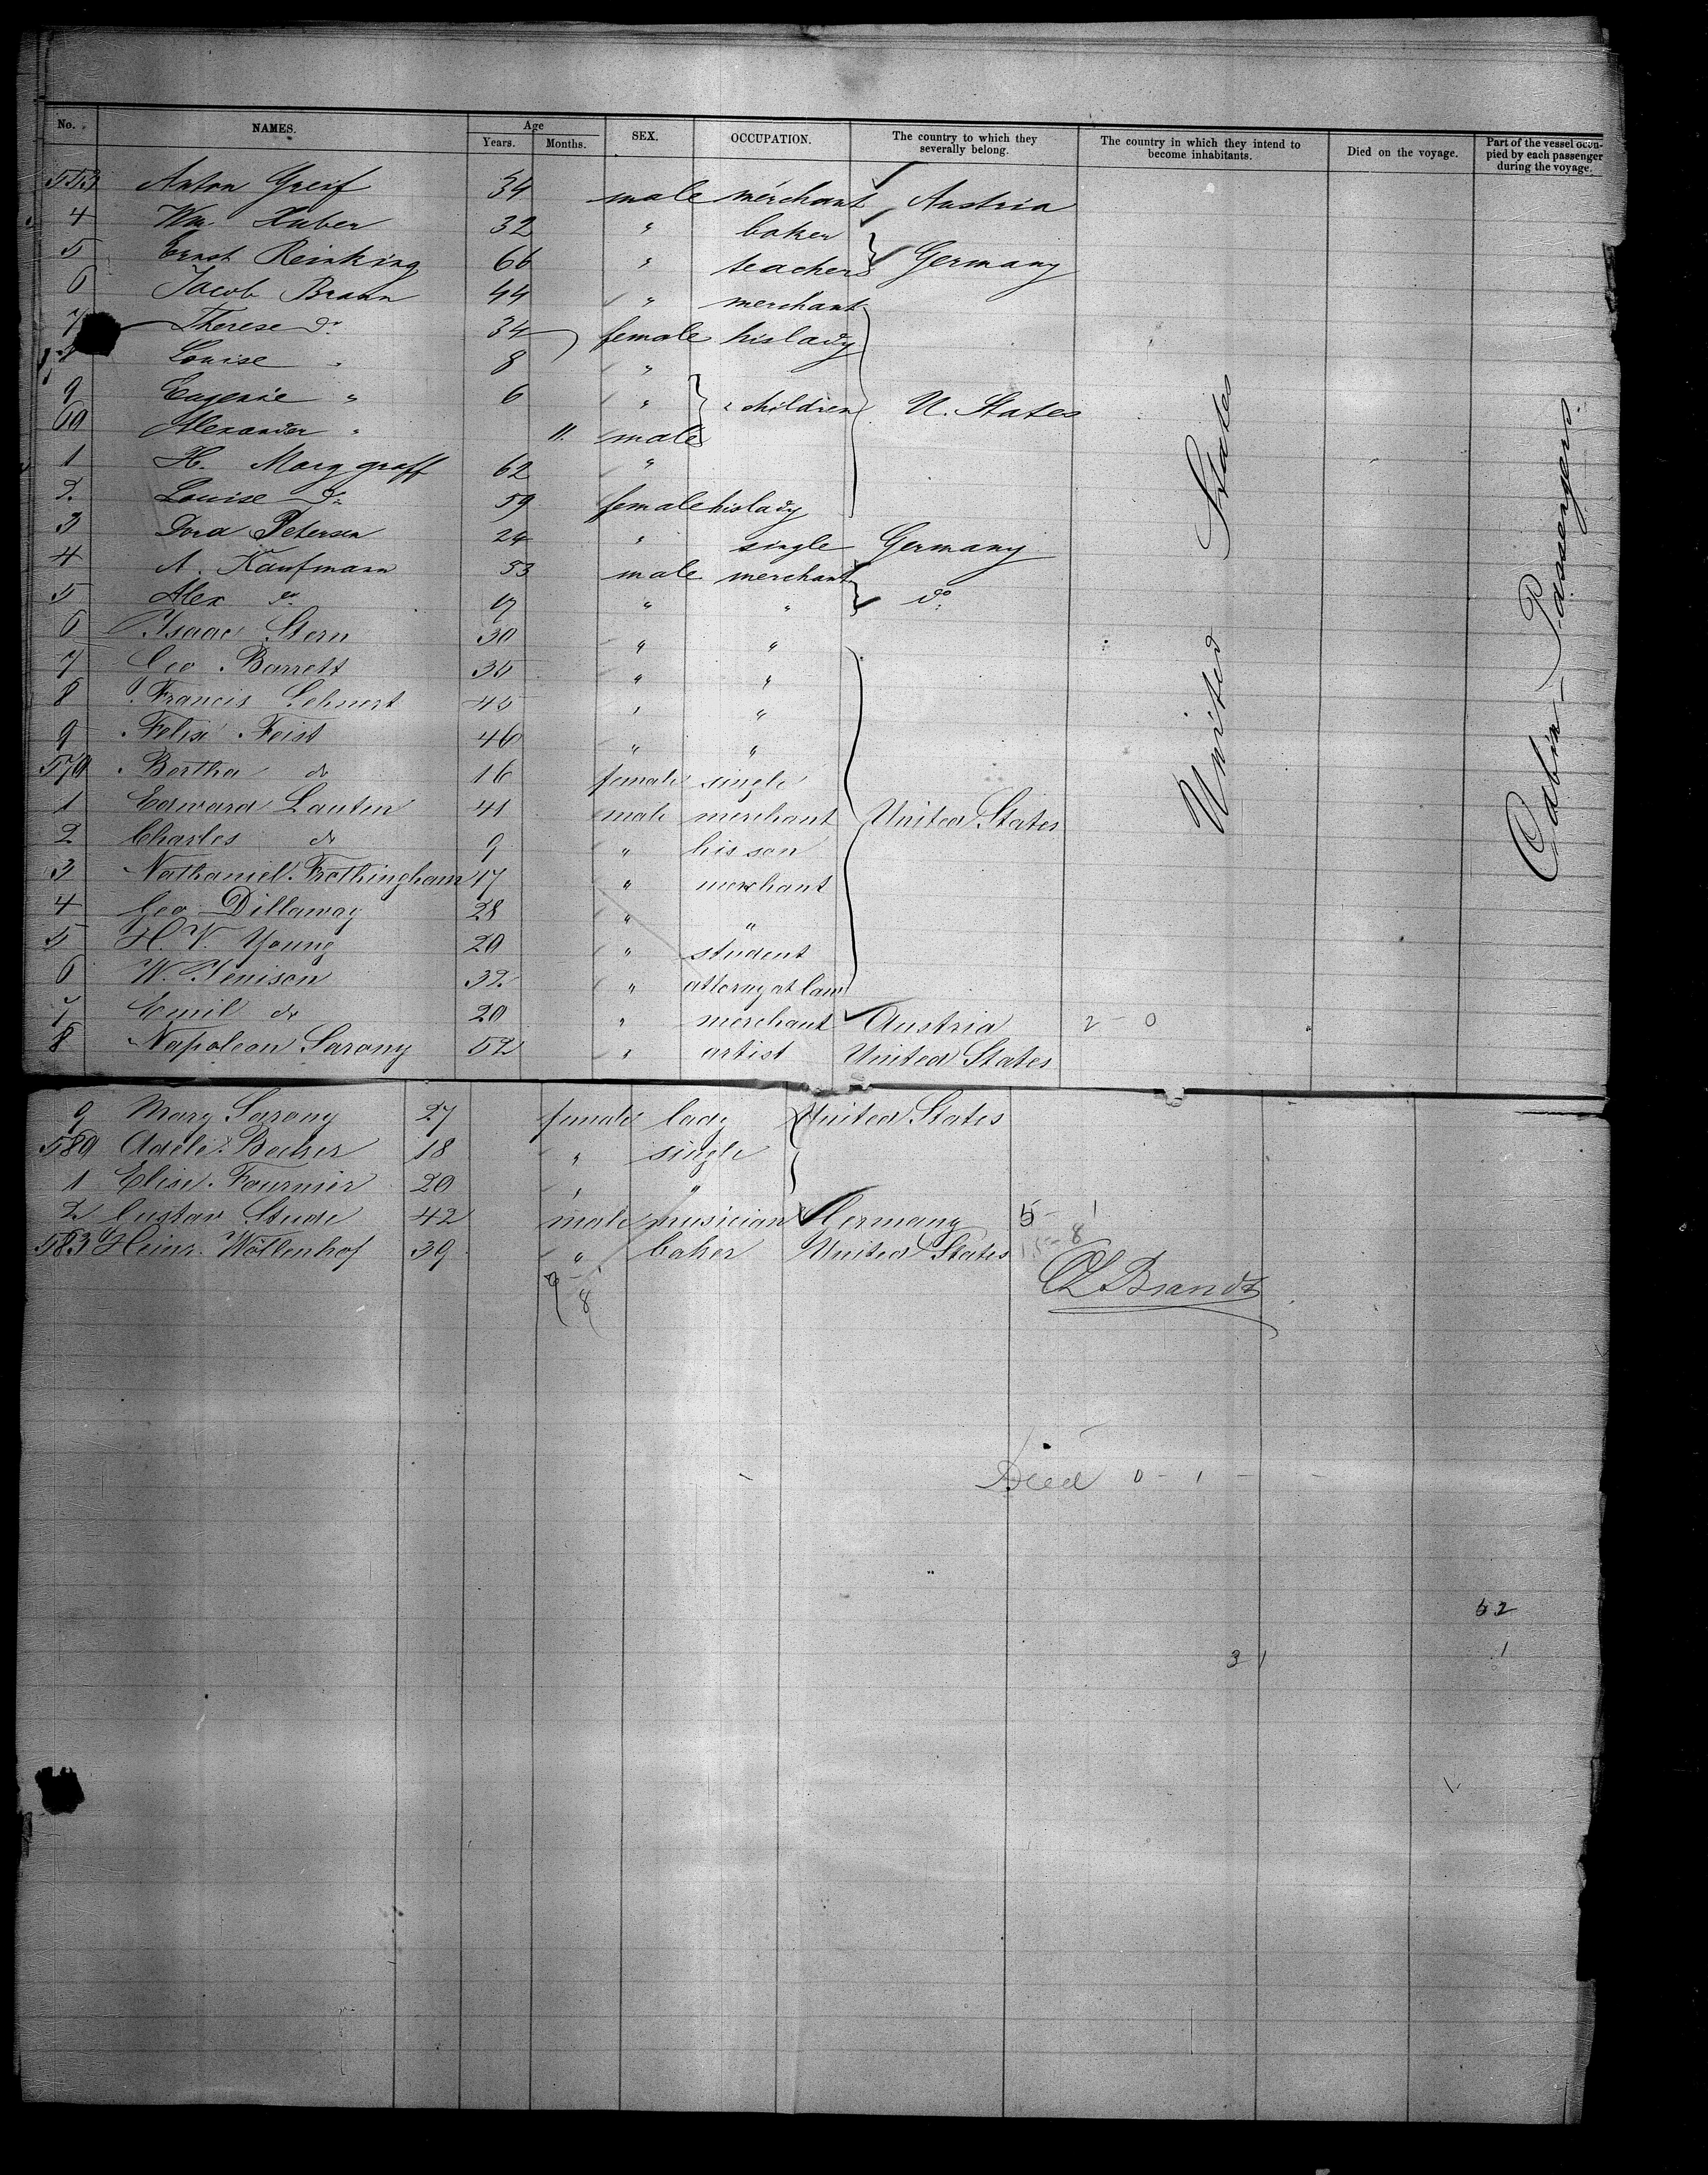 No. NAMES. Age Years. Months. SEX. OCCUPATION. The country to which they severally belong. The country in which they intend to become inhabitants. Died on the voyage. Part of the vessel occupied by each passenger during the voyage.
553 Anton Greif 34 male merchant Austria
4 Wm. Huber 32 " baker
5 Ernst Reinking 66 " teacher Germany
6 Jacob Braun 44 " merchant
7 Therese do 34 female his lady
8 Louise " 8 "
9 Eugenie " 6 " children U. States
60 Alexander " 11. male
1 H. Marggraff 62 "
2. Louise do 59 female his lady
3 Dora Petersen 24 " single Germany
4 A. Kaufmann 53 male merchant
5 Alex do " " do
6 Isaac Stern 30 " "
7 Geo. Barrett 30 " "
8 Francis Lehnert 45 " "
9 Felix Feist 46 " "
570 Bertha do 16 female single
1 Edward Lauten 41 male merchant United States
2 Charles do 9 " his son
3 Nathaniel Frothingham 47 " merchant
4 Geo Dillaway 28 " "
5 H. V. Young 20 " student
6 W. Jenison 32 " attorny at law
7 Emil do 20 " merchant Austria 2 - 0
8 Napoleon Sarony 52 " artist United States
United States
Cabin - Passengers.
9 Mary Sarony 27 female lady United States
580 Adele Becher 18 " single
1 Elise Fournier 20 " "
2 Gustav Stude 42 male musician Germany 5 - 1
583 Heinr. Wöltenhof 39 " baker United States 15 - 8
8
Brandt
Died 0 - 1 -
52
31 1